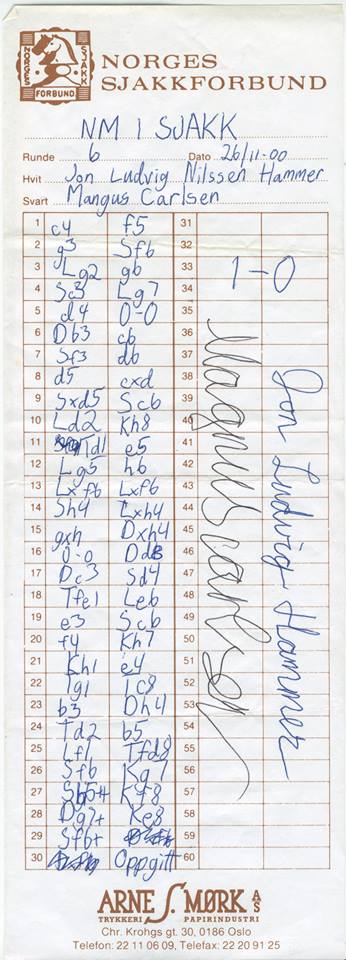 NORGES SJAKK FORBUND
NORGES
SJAKKFORBUND
NM I SJAKK
Runde 6 Dato 26/11-00
Hvit Jon Ludvig Nilssen Hammer
Svart Mangus Carlsen
1 c4 f5 31
2 g3 Sf6 32
3 Lg2 g6 33 1-0
4 Sc3 Lg7 34
5 d4 0-0 35
6 Db3 c6 36
7 Sf3 d6 37
8 d5 cxd 38
9 Sxd5 Sc6 39
10 Ld2 Kh8 40
11 Td1 e5 41
12 Lg5 h6 42
13 Lxf6 Lxf6 43
14 Sh4 Lxh4 44
15 gxh Dxh4 45
16 0-0 Dd8 46
17 Dc3 Sd4 47
18 Tfe1 Le6 48
19 e3 Sc6 49
20 f4 Kh7 50
21 Kh1 e4 51
22 Tg1 Tc8 52
23 b3 Dh4 53
24 Td2 b5 54
25 Lf1 Tfd8 55
26 Sf6 Kg7 56
27 Kf8 57
28 Dg7+ Ke8 58
29 Sf6+ 59
30 Oppgitt 60
Magnus Carlsen
Jon Ludvig Hammer
ARNE S. MØRK A/S
TRYKKERI PAPIRINDUSTRI
Chr. Krohgs gt. 30, 0186 Oslo
Telefon: 22 11 06 09, Telefax: 22 20 91 25